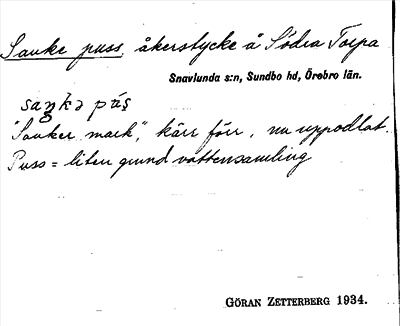 Sanke puss, åkerstycke å Södra Torpa
Snavlunda s:n, Sundbo hd, Örebro län.
saŋkə pus
"Sanker mark", kärr förr, nu uppodlat.
Puss = liten grund vattensamling
GÖRAN ZETTERBERG 1934.